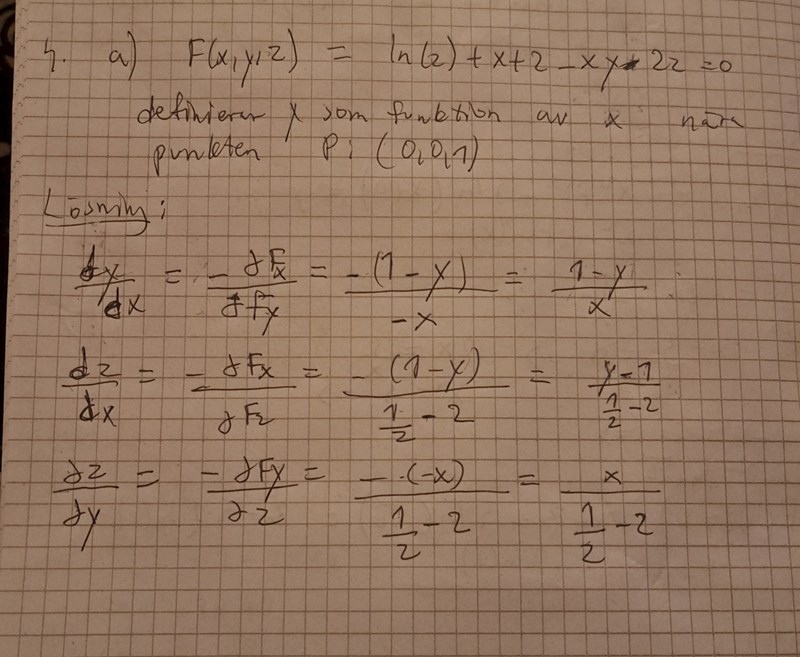 4. a) F(x,y,z) = ln(z) + x + 2 - xy - 2z = 0
definierar y som funktion av x nära
punkten P: (0,0,1)
Lösning:
dy/dx = -∂Fx/∂Fy = -(1-y)/-x = 1-y/x
dz/dx = -∂Fx/∂Fz = -(1-y)/(1/z - 2) = y-1/(1/z - 2)
∂z/∂y = -∂Fy/∂z = -·(-x)/(1/z - 2) = x/(1/z - 2)